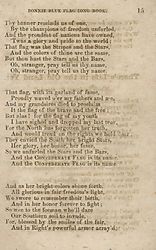 BONNIE BLUE FLAG SONG BOOK. 15
Thy banner reminds us of one,
By the champions of freedom unfurled,
And the proudest of nations have owned,
'Twas a glory and pride to the world.
That flag was the Stripes and the Stars,
And the colors of thine are the same,
But thou hast the Stars and the Bars,
Oh, stranger, pray tell us thy name.
Oh, stranger, pray tell us thy name.
That flag, with its garland of fame,
Proudly waved o'er my fathers and
And my grandsires died to proclaim
It the flag of the brave and the free.
But alas! for the flag of my youth
I have sighed and dropped my last tear,
For the North has forgotten her truth,
And would tread on the rights we hold
They envied the South her bright Stars,
Her glory, her honor, her fame,
So we unfurled the Stars and the Bars,
And the CONFEDERATE FLAG is its name
And the CONFEDERATE FLAG is its name
And as her bright colors above forth,
All glorious in fair freedom's light,
We swore to remember their birth,
And in her honor forever to fight;
So woe to the foeman who'll dare
Our Southern soil to invade,
For, blessed by the smiles of the fair,
And in Right's powerful armor array'd,